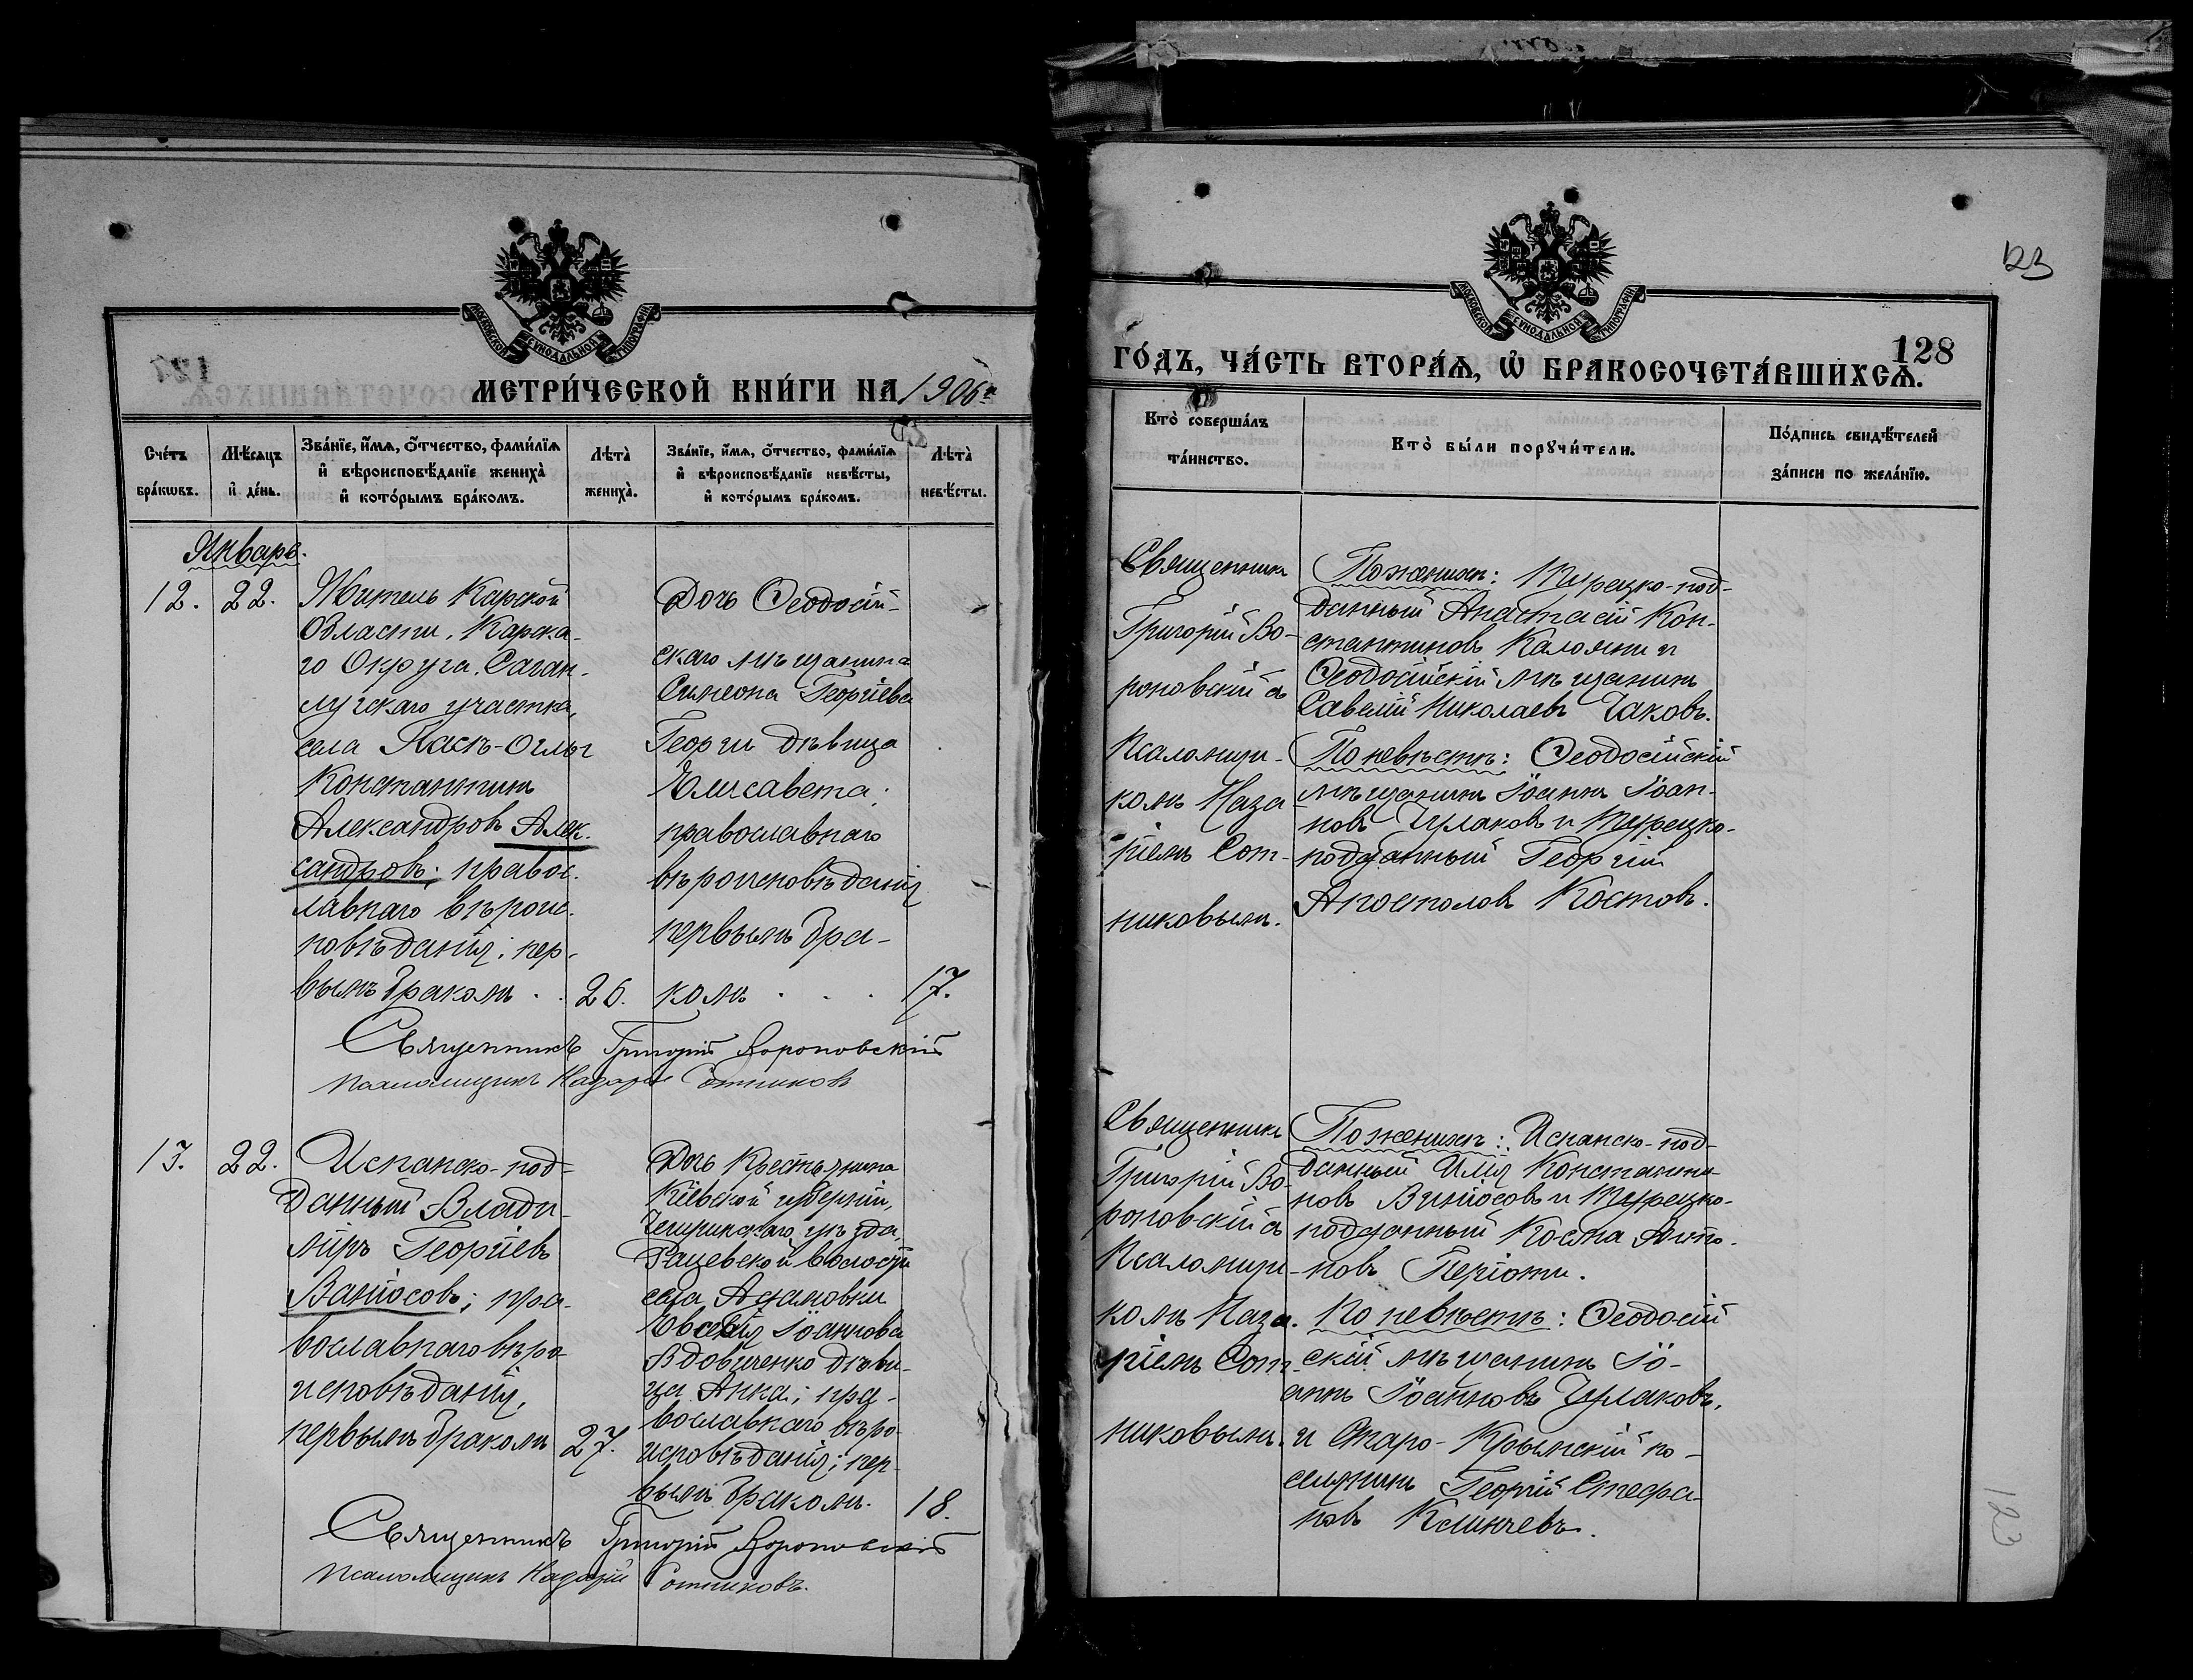 МОСКОВСКОЙ СѴНОДАЛЬНОЙ ТИПОГРАФІИ
МЕТРИ́ЧЕСКОЙ КНИ́ГИ НА 1906 г.
Сче́тъ бра́кѡвъ.
Мѣ́сяцъ и҆ де́нь.
Зва́нїе, и҆́мѧ, ѻ҆́тчество, фами́лїѧ и҆ вѣроисповѣ́данїе жениха̀ и҆ кото́рымъ бра́комъ.
Лѣта̀ жениха̀.
Зва́нїе, и҆́мѧ, ѻ҆́тчество, фами́лїѧ и҆ вѣроисповѣ́данїе невѣ́сты, и҆ кото́рымъ бра́комъ.
Лѣта̀ невѣ́сты.
Январь.
12. 22.
Житель Карской
Области, Карска-
го Округа, Саган-
лугскаго участка,
села
Константинъ
Александровъ Алек-
сандровъ; правос-
лавнаго вѣроис-
повѣданія; пер-
вымъ бракомъ . . 26.
Дочь Ѳеодосій-
скаго мѣщанина
Симеона Георгіева
Георги дѣвица
Елисавета;
православнаго
вѣроисповѣданія
первымъ бра-
комъ . . . 17.
Священникъ Григорій Вороновскій
Псаломщикъ Назарій Сотниковъ
13. 22.
Испанско-под-
данный Влади-
міръ Георгіевъ
Ваніосовъ; пра-
вославнаго вѣро-
исповѣданія,
первымъ бракомъ 27.
Дочь Крестьянина
Кіевской губерніи,
Чигиринскаго уѣзда,
Рацевской волости
села Адамовки
Евсевія Іоаннова
Вдовиченко дѣви-
ца Анна; пра-
вославнаго вѣро-
исповѣданія; пер-
вымъ бракомъ. 18.
Священникъ Григорій Вороновскій
Псаломщикъ Назарій Сотниковъ.
123
МОСКОВСКОЙ СѴНОДАЛЬНОЙ ТИПОГРАФІИ
128
ГО́ДЪ, ЧА́СТЬ ВТОРА́Ѧ, Ѡ҆ БРАКОСОЧЕТА́ВШИХСѦ.
Кто̀ соверша́лъ та́инство.
Кто̀ бы́ли порꙋчи́тели.
По́дпись свидѣ́телей за́писи по жела́нїю.
Священникъ
Григорій Во-
роновскій съ
Псаломщи-
комъ Наза-
ріемъ Сот-
никовымъ.
По женихѣ: Турецко-под-
данный Анастасій Кон-
стантиновъ Калояни и
Ѳеодосійскій мѣщанинъ
Савелій Николаевъ Чаковъ.
По невѣстѣ: Ѳеодосійскій
мѣщанинъ Іоаннъ Іоан-
новъ Чулаковъ и Турецко-
подданный Георгій
Апостоловъ Костовъ.
Священникъ
Григорій Во-
роновскій съ
Псаломщи-
комъ Наза-
ріемъ Сот-
никовымъ.
По женихѣ: Испанско-под-
данный Илія Константи-
новъ и Турецко-
подданный Косма
новъ
По невѣстѣ: Ѳеодосій
скій мѣщанинъ Іо-
аннъ Іоанновъ Чулаковъ,
и Старо-Крымскій по-
селянинъ Георгій Стефа-
новъ Клинчевъ.
123